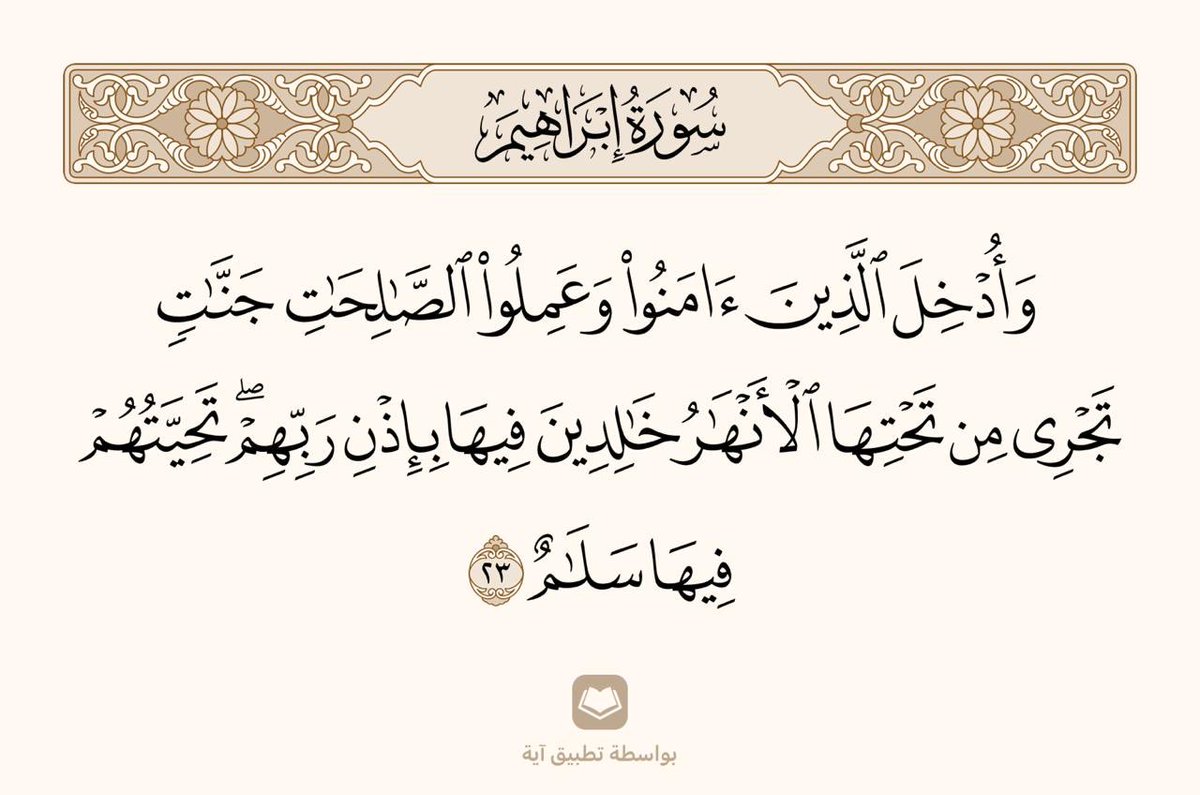 سُورَةُ إِبْرَاهِيمَ
وَأُدْخِلَ ٱلَّذِينَ ءَامَنُوا۟ وَعَمِلُوا۟ ٱلصَّـٰلِحَـٰتِ جَنَّـٰتٍۢ
تَجْرِى مِن تَحْتِهَا ٱلْأَنْهَـٰرُ خَـٰلِدِينَ فِيهَا بِإِذْنِ رَبِّهِمْ ۖ تَحِيَّتُهُمْ
فِيهَا سَلَـٰمٌ ٢٣
بواسطة تطبيق آية